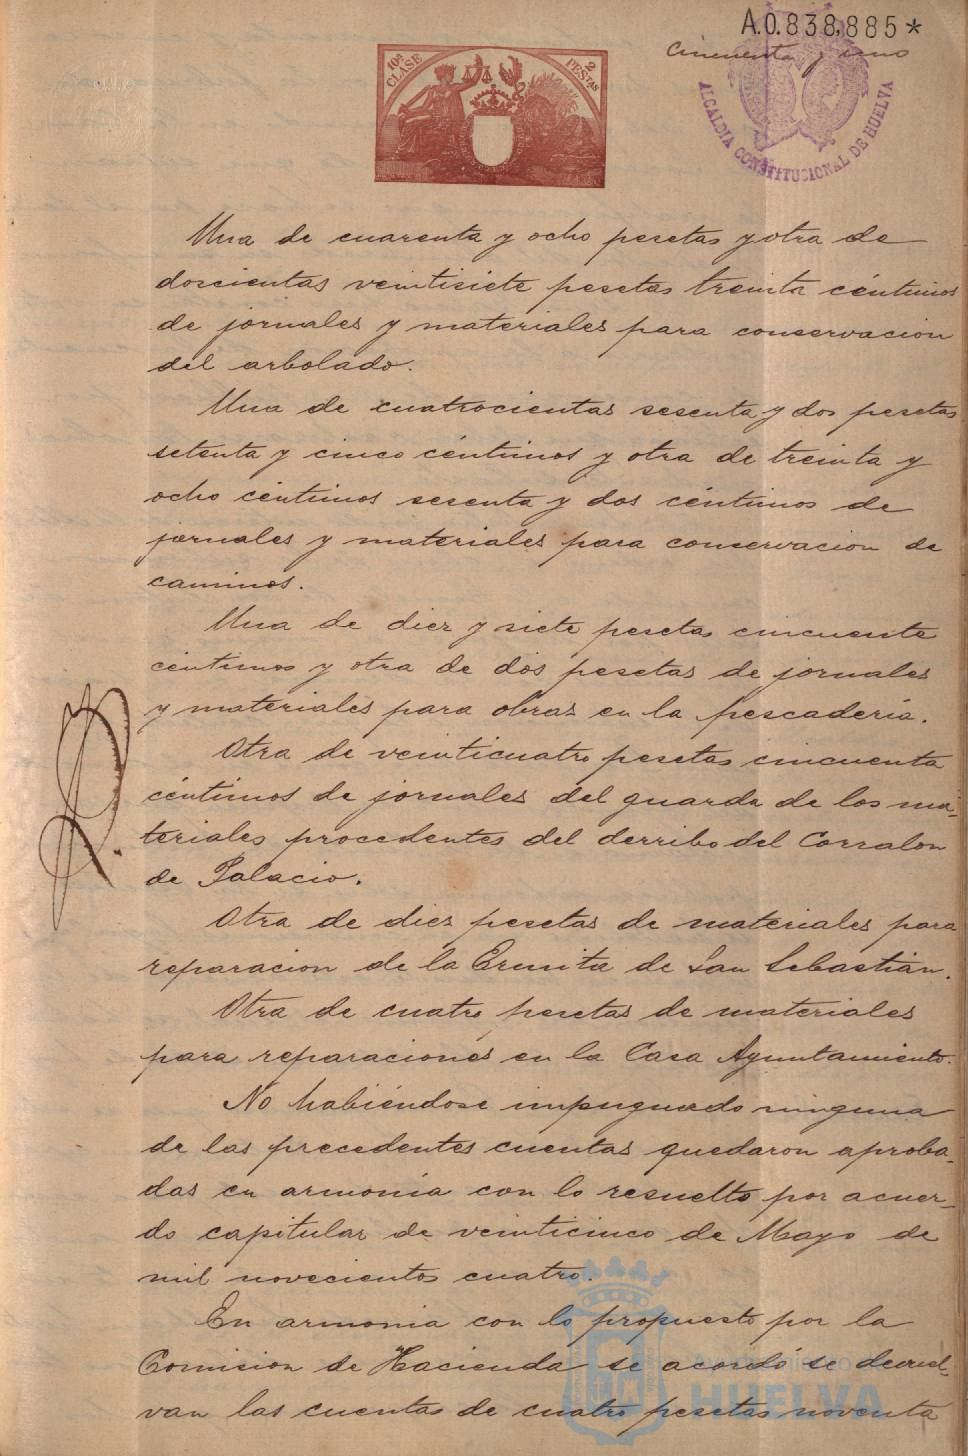 A.0.838,885*
Cincuenta y uno
10ª CLASE
2 PESTAS
ALCALDIA CONSTITUCIONAL DE HUELVA
Una de cuarenta y ocho pesetas y otra de
doscientas veintisiete pesetas treinta céntimos
de jornales y materiales para conservacion
del arbolado.
Una de cuatrocientas sesenta y dos pesetas
setenta y cinco céntimos y otra de treinta y
ocho céntimos sesenta y dos céntimos de
jornales y materiales para conservacion de
caminos.
Una de diez y siete pesetas cincuente
céntimos y otra de dós pesetas de jornales
y materiales para obras en la pescadería.
Otra de veinticuatro pesetas cincuenta
céntimos de jornales del guarda de los ma-
teriales procedentes del derribo del Corralon
de Palacio.
Otra de diez pesetas de materiales para
reparacion de la Ermita de San Sebastián.
Otra de cuatro pesetas de materiales
para reparaciones en la Casa Ayuntamiento.
No habiéndose impugnado ninguna
de las precedentes cuentas quedaron aproba-
das en armonia con lo resuelto por acuer-
do capitular de veinticinco de Mayo de
mil novecientos cuatro.
En armonia con lo propuesto por la
Comision de Hacienda se acordó se devuel-
van las cuentas de cuatro pesetas noventa
Ayuntamiento
HUELVA